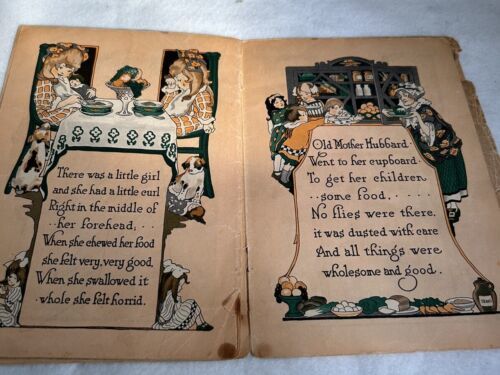 There was a little girl
and she had a little curl
Right in the middle of
her forehead,
When she chewed her food
she felt very, very good,
When she swallowed it
whole she felt horrid.
Old Mother Hubbard
Went to her cupboard
To get her children
some food, . . . . .
No flies were there,
it was dusted with care
And all things were
wholesome and good.